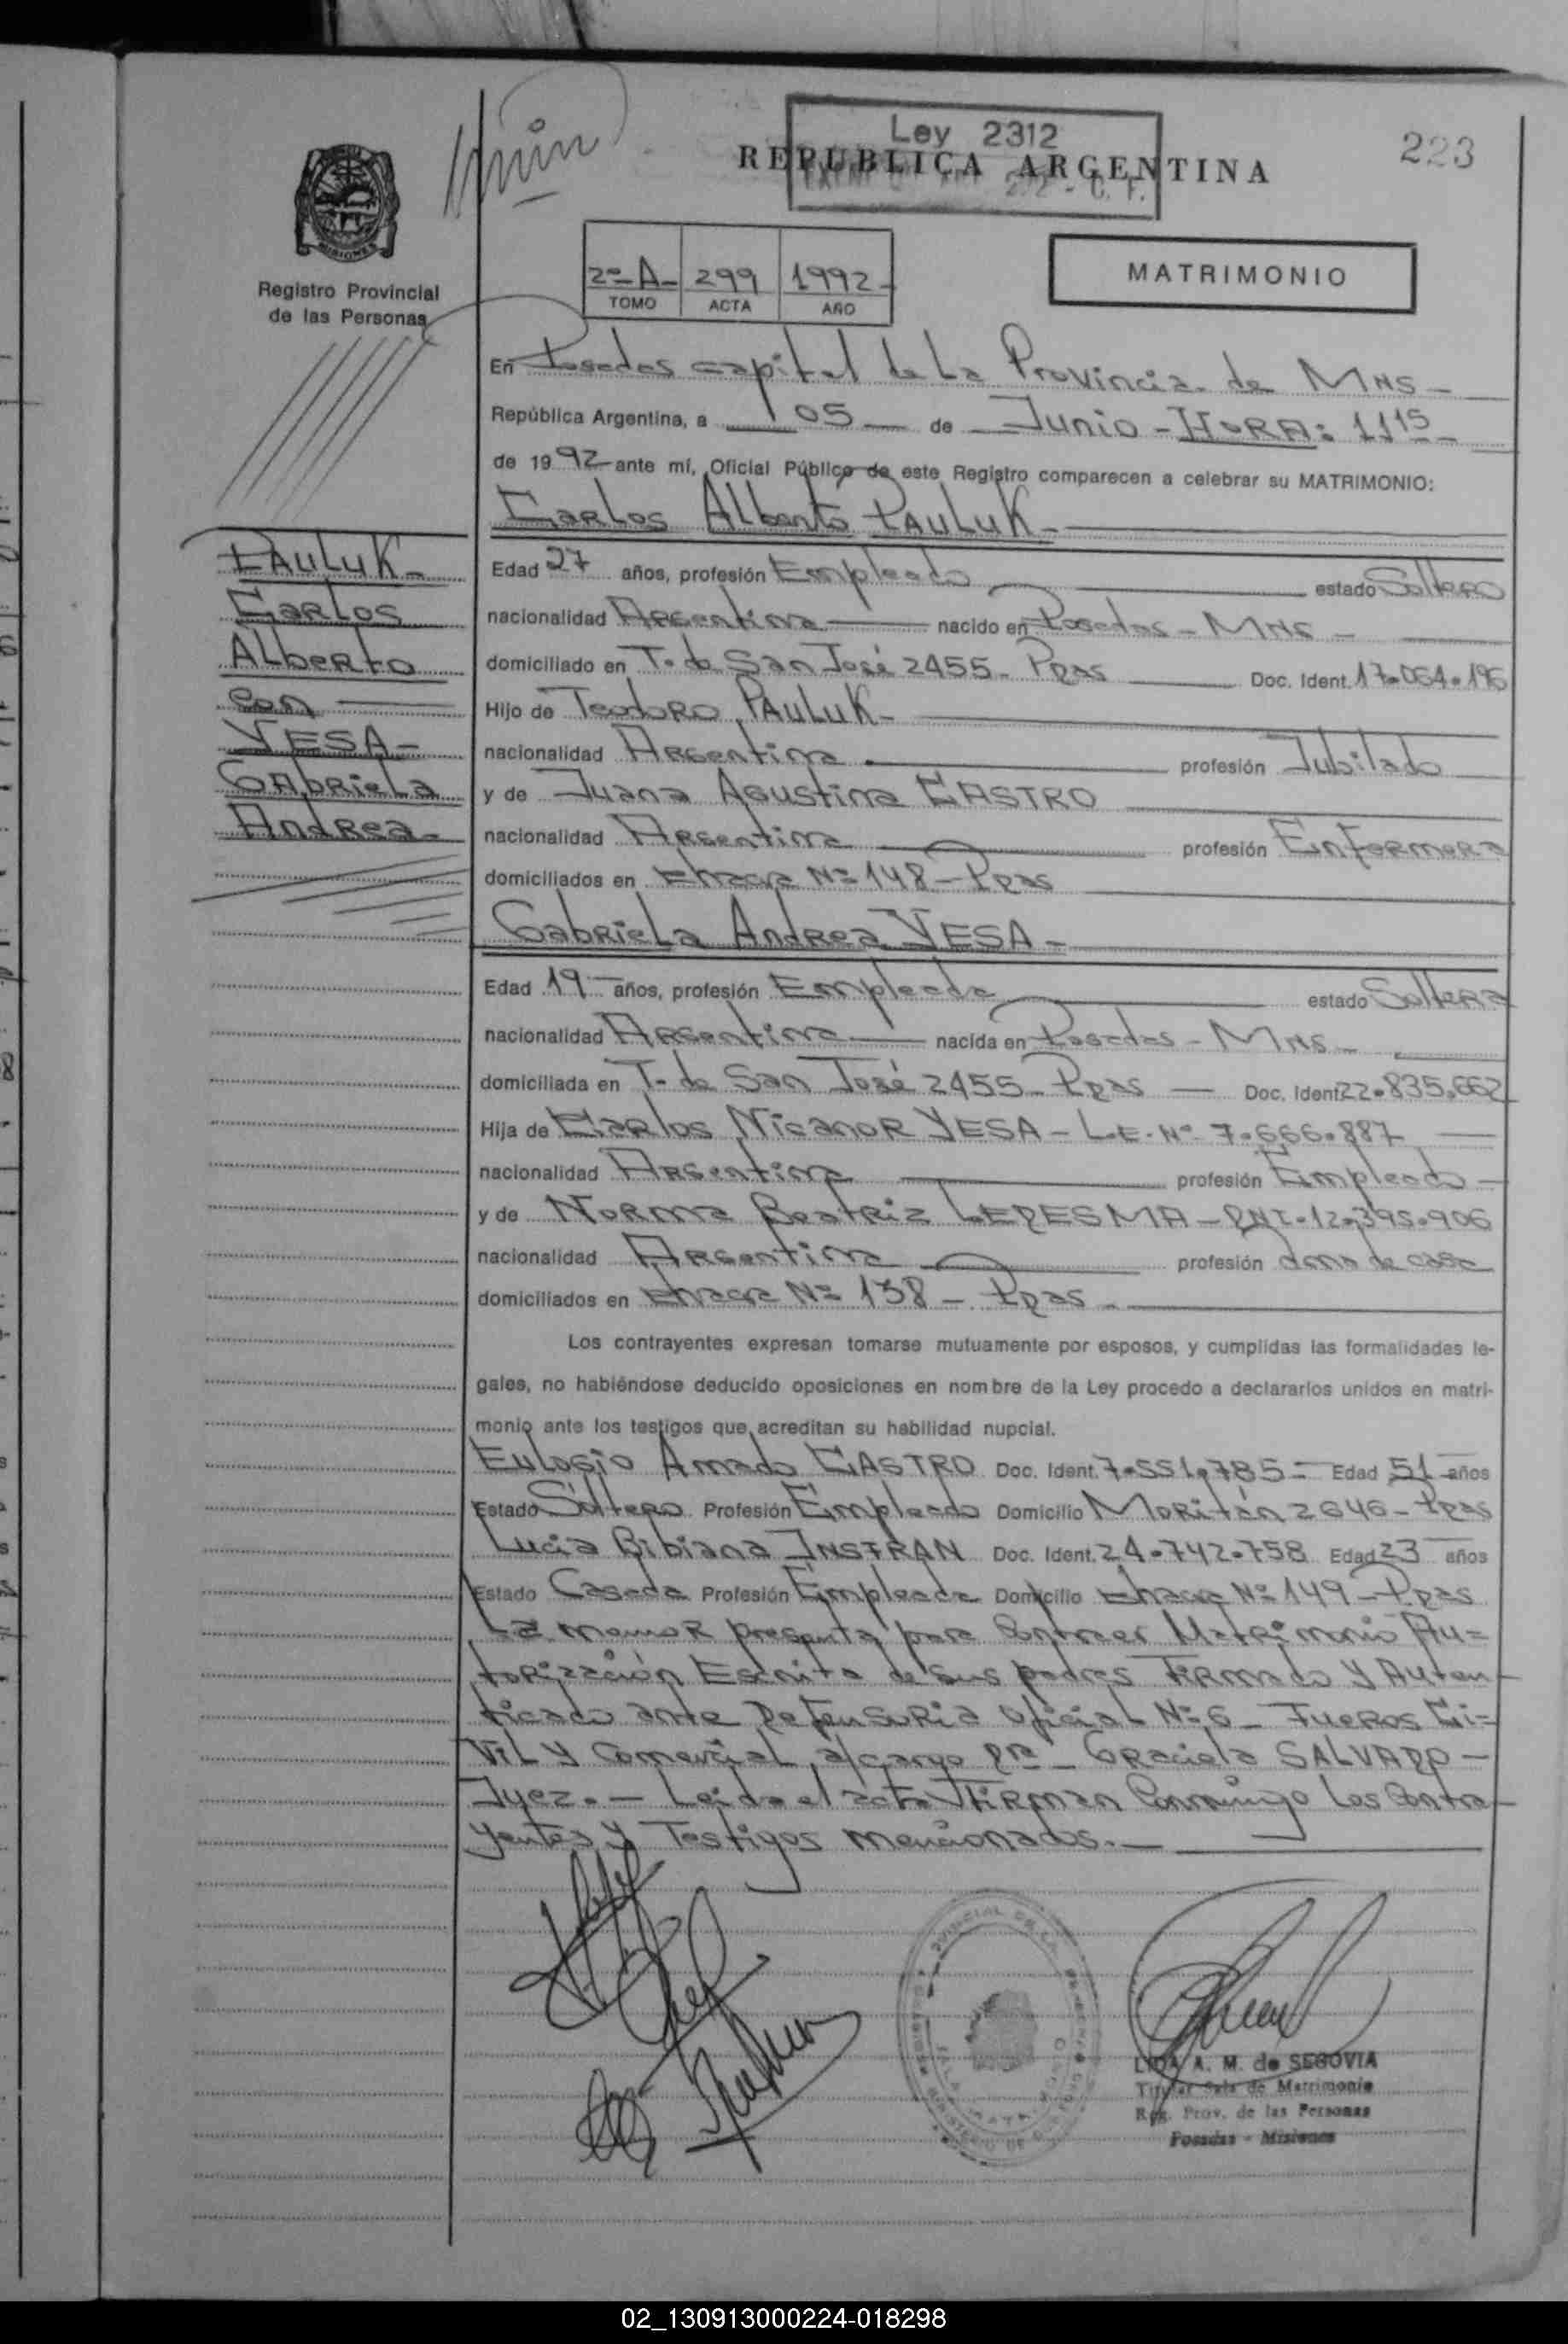 Ley 2312
REPUBLICA ARGENTINA
223
MISIONES
Registro Provincial
de las Personas
2º A- 299 1992-
TOMO ACTA AÑO
MATRIMONIO
En Posadas capital de La Provincia de MNS-
República Argentina, a 05 de Junio - HORA: 11 15-
de 19 92 ante mí, Oficial Público de este Registro comparecen a celebrar su MATRIMONIO:
Carlos Alberto PAULUK-
PAULUK-
Carlos
Alberto
con
YESA-
Gabriela
Andrea-
Edad 27 años, profesión Empleado estado Soltero
nacionalidad Argentina nacido en Posadas - MNS -
domiciliado en T. de San José 2455- Pdas Doc. Ident. 17.064.196
Hijo de Teodoro PAULUK-
nacionalidad Argentina profesión Jubilado
y de Juana Agustina CASTRO
nacionalidad Argentina profesión Enfermera
domiciliados en Chacra Nº 148 - Pdas
Gabriela Andrea YESA-
Edad 19 años, profesión Empleada estado Soltera
nacionalidad Argentina nacida en Posadas - MNS-
domiciliada en T. de San José 2455- Pdas Doc. Ident. 22.835.662
Hija de Carlos Nicanor YESA - L.E. Nº 7.666.887
nacionalidad Argentina profesión Empleado
y de Norma Beatriz LEDESMA - DNI.12.395.906
nacionalidad Argentina profesión ama de casa
domiciliados en Chacra Nº 138 - Pdas.
Los contrayentes expresan tomarse mutuamente por esposos, y cumplidas las formalidades le-
gales, no habiéndose deducido oposiciones en nombre de la Ley procedo a declararlos unidos en matri-
monio ante los testigos que acreditan su habilidad nupcial.
Eulogio Amado CASTRO Doc. Ident. 7.551.785- Edad 51 años
Estado Soltero Profesión Empleado Domicilio Moritán 2646- Pdas
Lucia Bibiana INSFRAN Doc. Ident. 24.742.758 Edad 23 años
Estado Casada Profesión Empleada Domicilio Chacra Nº 149 - Pdas
La menor presenta para Contraer Matrimonio Au=
torización Escrita de sus padres Firmado y Auten-
ticado ante Defensoria Oficial Nº 6 - Fueros Ci=
vil y Comercial, a/cargo Dra - Graciela SALVADO-
Juez.- Leida el acta Firman Conmigo Los Contra-
yentes y Testigos mencionados.-
LIDA A. M. de SEGOVIA
Titular Sala de Matrimonio
Reg. Prov. de las Personas
Posadas - Misiones
02_130913000224-018298